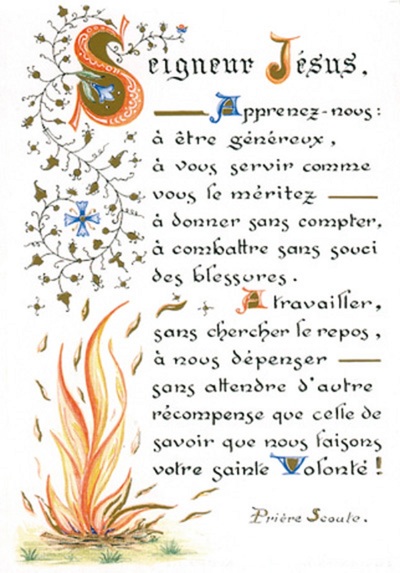 Seigneur Jésus,
Apprenez-nous :
à être généreux,
à vous servir comme
vous le méritez
à donner sans compter,
à combattre sans souci
des blessures.
A travailler,
sans chercher le repos,
à nous dépenser
sans attendre d'autre
récompense que celle de
savoir que nous faisons
votre sainte Volonté !
Prière Scoute.